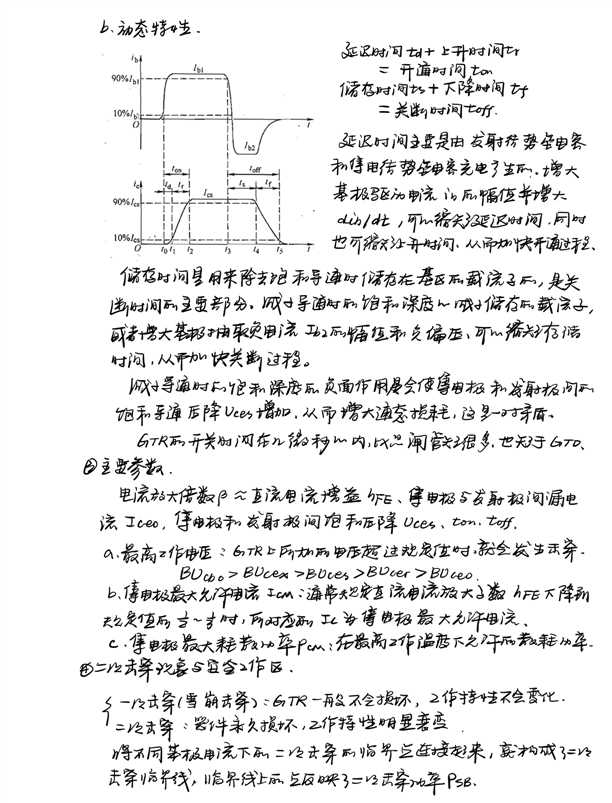 b. 动态特性.
延迟时间td + 上升时间tr
= 开通时间ton
储存时间ts + 下降时间tf
= 关断时间toff.
ib
90%Ib1
Ib1
10%Ib1
O
Ib2
t
ton
toff
td
tr
ts
tf
ic
90%Ics
Ics
10%Ics
O
t0 t1 t2 t3 t4 t5
t
延迟时间主要是由发射结势垒电容
和集电结势垒电容充电产生的. 增大
基极驱动电流ib的幅值并增大
dib/dt, 可以缩短延迟时间, 同时
也可缩短上升时间, 从而加快开通过程.
储存时间是用来除去饱和导通时储存在基区的载流子的, 是关
断时间的主要部分。减小导通时的饱和深度以减小储存的载流子,
或者增大基极抽取负电流Ib2的幅值和负偏压, 可以缩短存储
时间, 从而加快关断过程。
减小导通时的饱和深度的负面作用是会使集电极和发射极间的
饱和导通压降Uces增加, 从而增大通态损耗, 这是一对矛盾。
GTR的开关时间在几微秒以内, 比晶闸管短很多, 也短于GTO.
主要参数.
电流放大倍数β ~ 直流电流增益hFE、集电极与发射极间漏电
流Iceo, 集电极和发射极间饱和压降Uces、ton. toff.
a. 最高工作电压: GTR上所加的电压超过规定值时, 就会发生击穿.
BUcbo > BUcex > BUces > BUcer > BUceo.
b. 集电极最大允许电流IcM: 通常规定直流电流放大系数hFE下降到
规定值的 时, 所对应的Ic为集电极最大允许电流.
c. 集电极最大耗散功率PcM: 在最高工作温度下允许的耗散功率.
二次击穿现象与安全工作区.
一次击穿(雪崩击穿): GTR一般不会损坏, 工作特性不会变化.
二次击穿: 器件永久损坏, 工作特性明显衰变
将不同基极电流下的二次击穿的临界点连接起来, 就构成了二次
击穿临界线, 临界线上的点反映了二次击穿功率PSB.